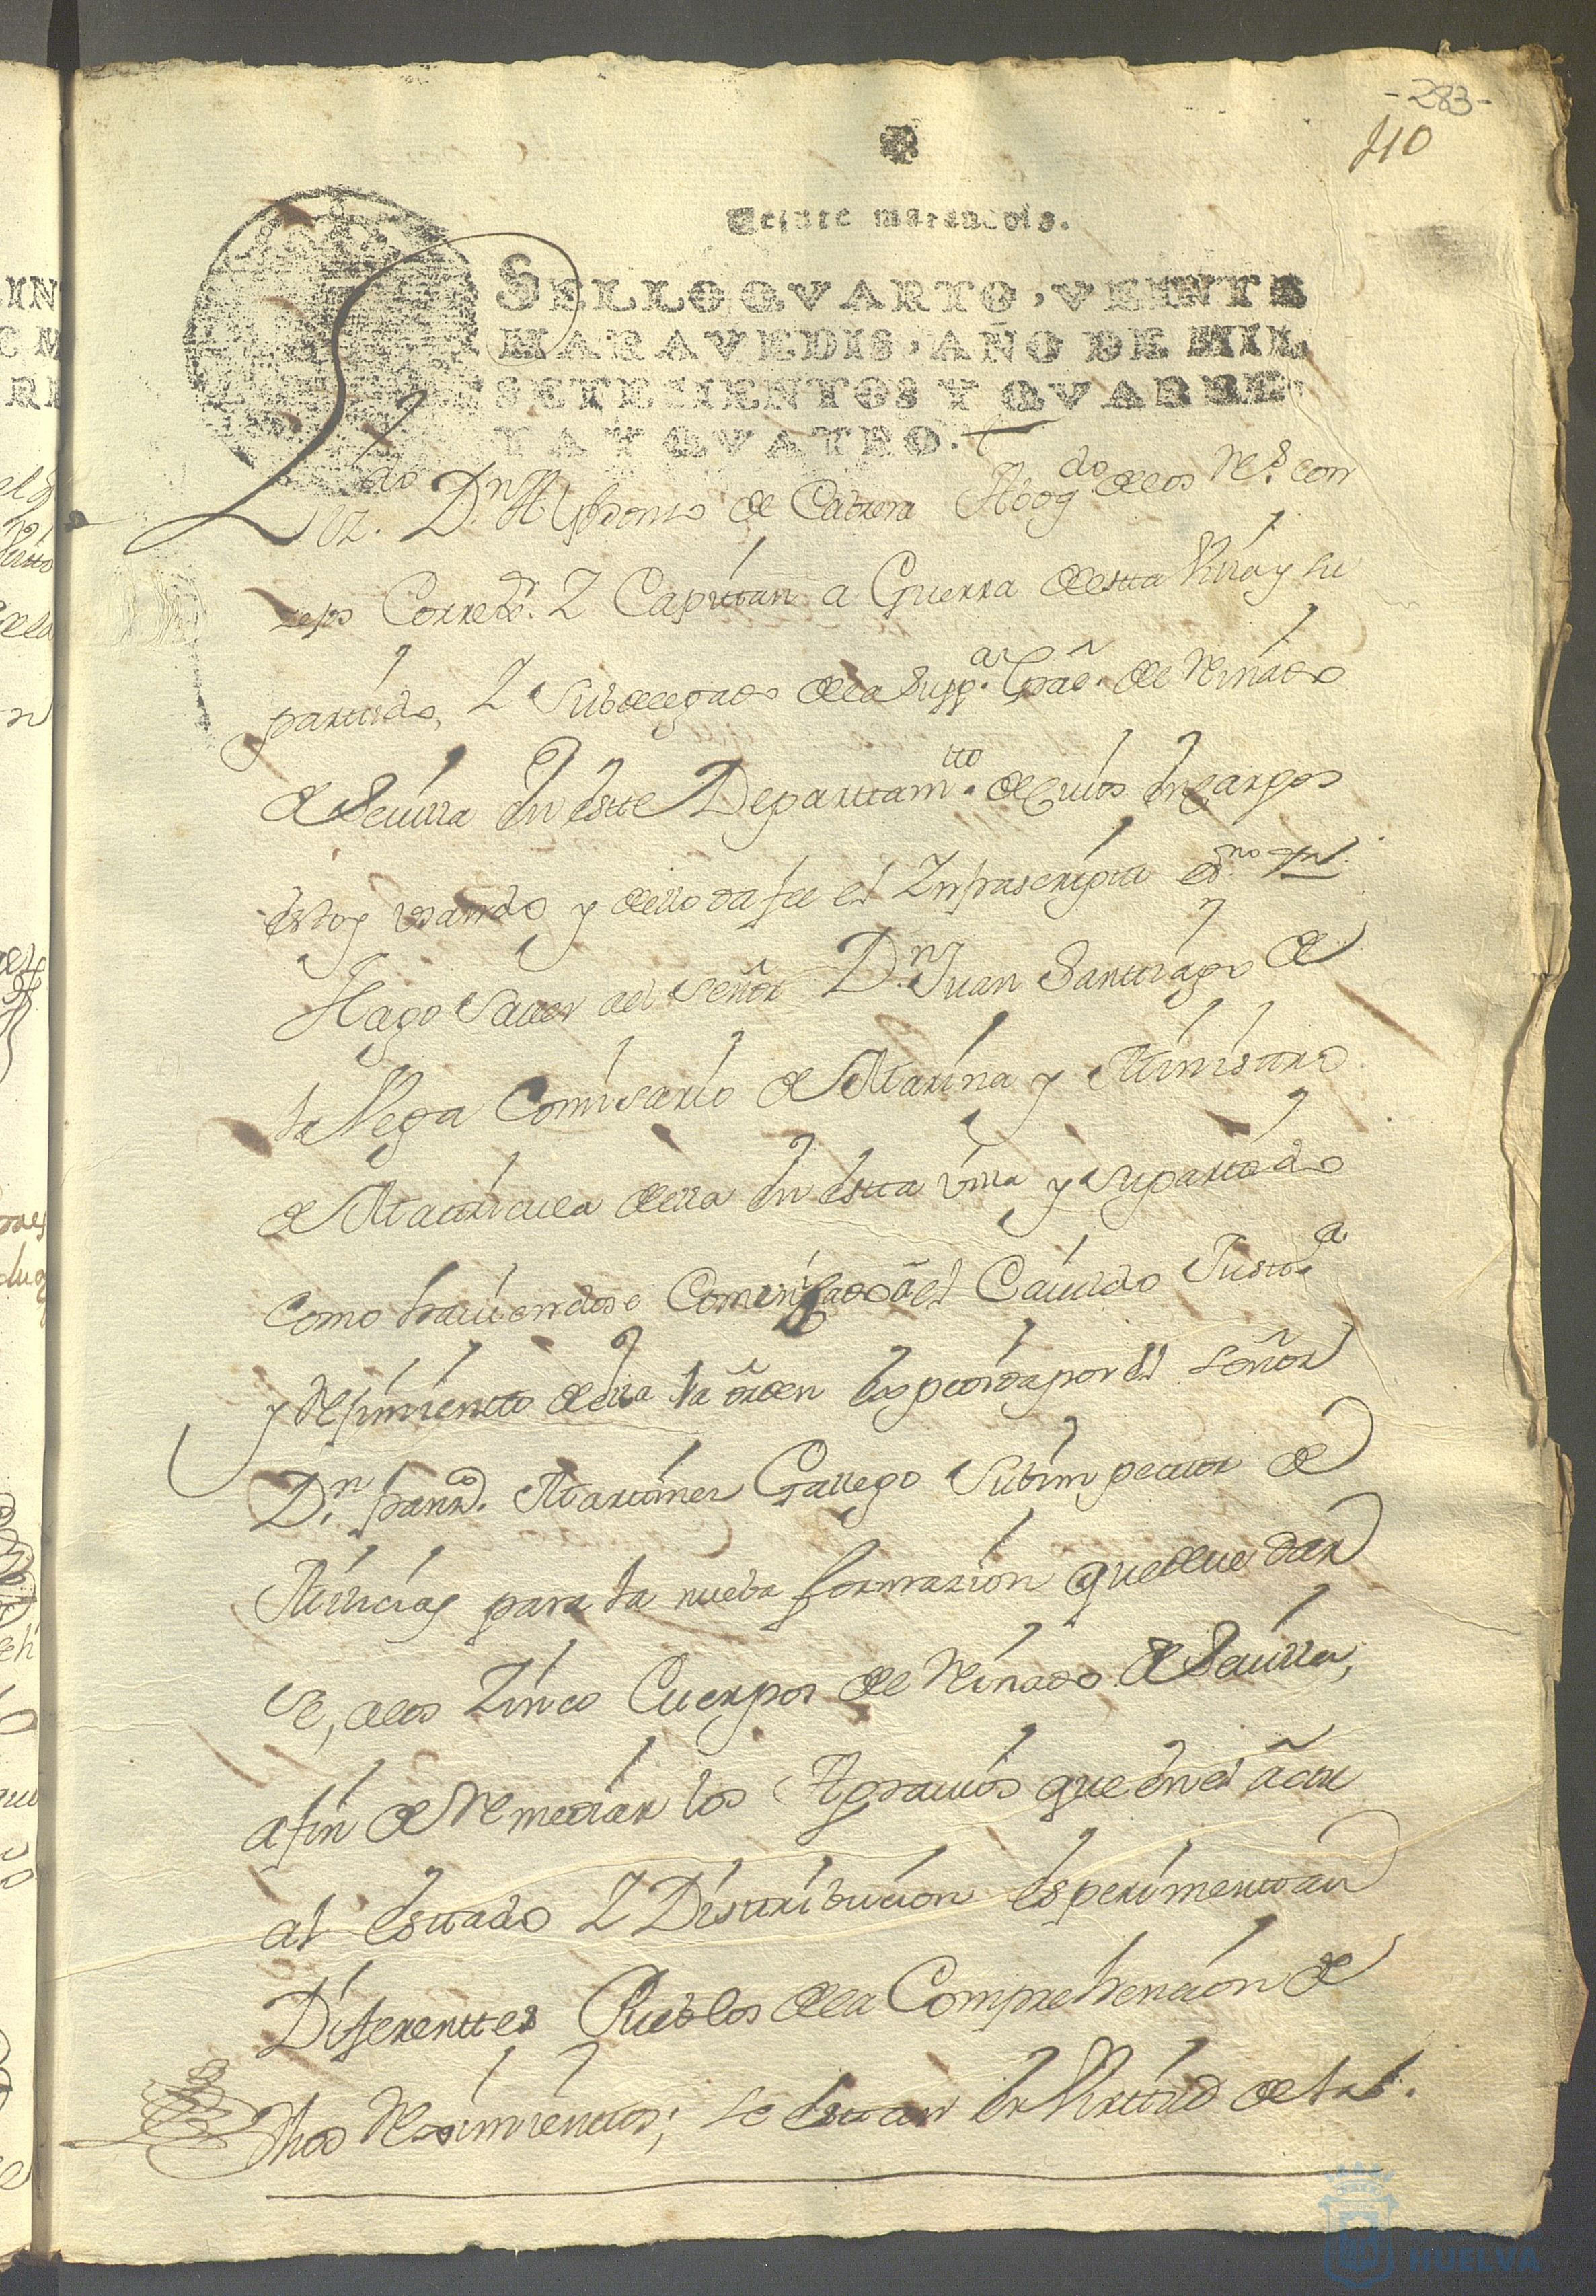 -283-
410
Veinte maravedis.
SELLO QVARTO, VEINTE
MARAVEDIS, AÑO DE MIL
SETECIENTOS Y QVAREN
TA Y QVATRO.
Lizdo. Dn. Alphonso de Cabrera Abogdo de los Rs. con
zejos Corregr. Y Capittan a Guerra de estta Villa y su
parttido, Y Subdelegado de la Supp.a Gral. de Reinado
de Sevilla En Estte Departtamtto. de Cuios Encargos
Estoy usando y de ello da fee el Ynfrascripto Esno.
Hago Saver al Señor Dn. Juan Santtiago de
la Vega Comisario de Marina y Ministtro
de Matricula de ella En Estta Villa y su parttido
Como haviendose Comunicado a el Cavildo Justt.a
y Reximientto de ella la orden Expedida por El Señor
Dn. Fernd. Marttinez Gallego Subinspecttor de
Milicias para la nueba formazion que deve dar
se, a los Zinco Cuerpos de Reinado de Sevilla,
a fin de Remediar los Agravios que En el actu
al Esttado Y Disttribucion Esperimenttan
Diferenttes Pueblos de la Comprehencion de
dhos Reximienttos; se Esttan En Virttud de la
HUELVA